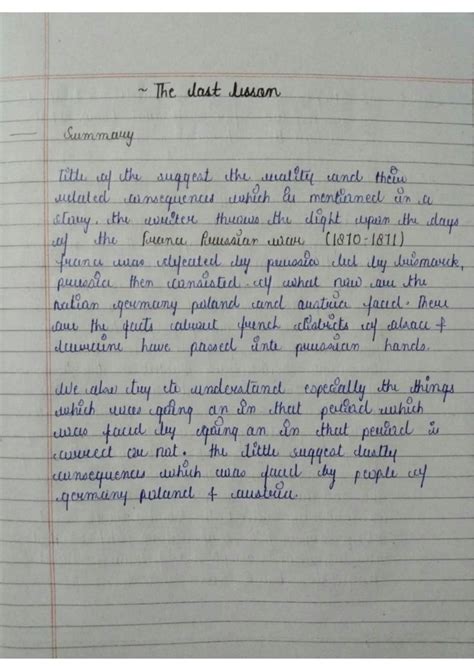 ~ The last lesson
Summary
Title of the suggest the reality and their
related consequences which is mentioned in a
story. the writer throws the light upon the days
of the Franc Prussian war (1870-1871)
franc was defeated by prussia led by bismarck,
prussia then consisted of what now are the
nation germany poland and austria faced. There
are the facts about french districts of alsace &
lourraine have passed into prussian hands.
We also try to understand especially the things
which was going on in that period which
was faced by going on in that period is
correct or not. the little suggest lastly
consequences which was faced by people of
germany poland & austria.